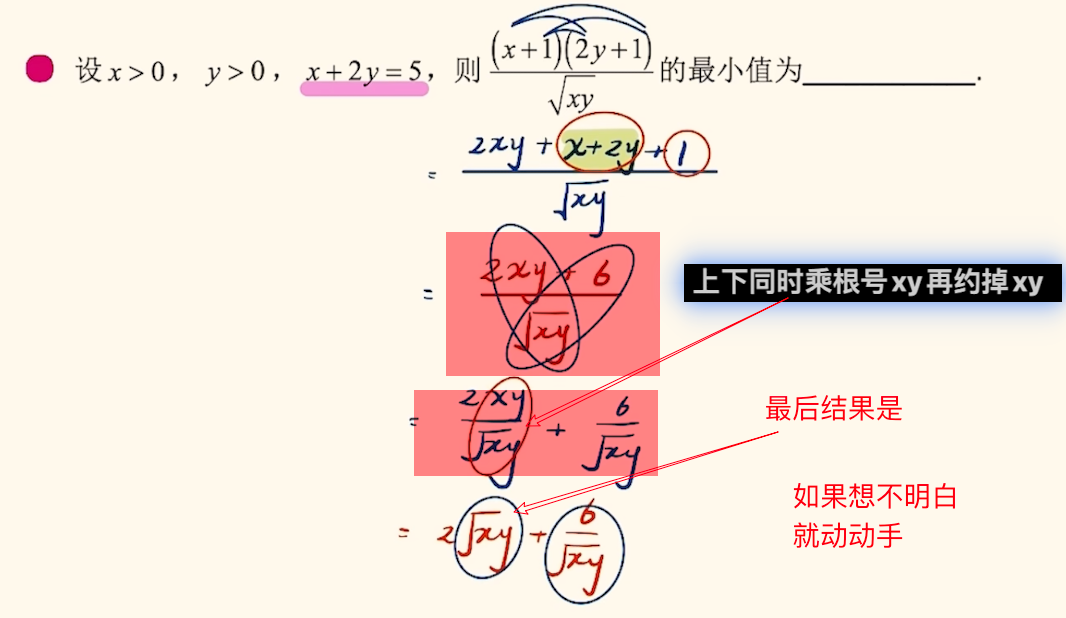 设 x > 0， y > 0， x + 2y = 5，则 (x+1)(2y+1) / √xy 的最小值为____________.
= (2xy + x+2y + 1) / √xy
= (2xy + 6) / √xy
上下同时乘根号xy再约掉xy
= 2xy / √xy + 6 / √xy
最后结果是
如果想不明白
就动动手
= 2√xy + 6 / √xy